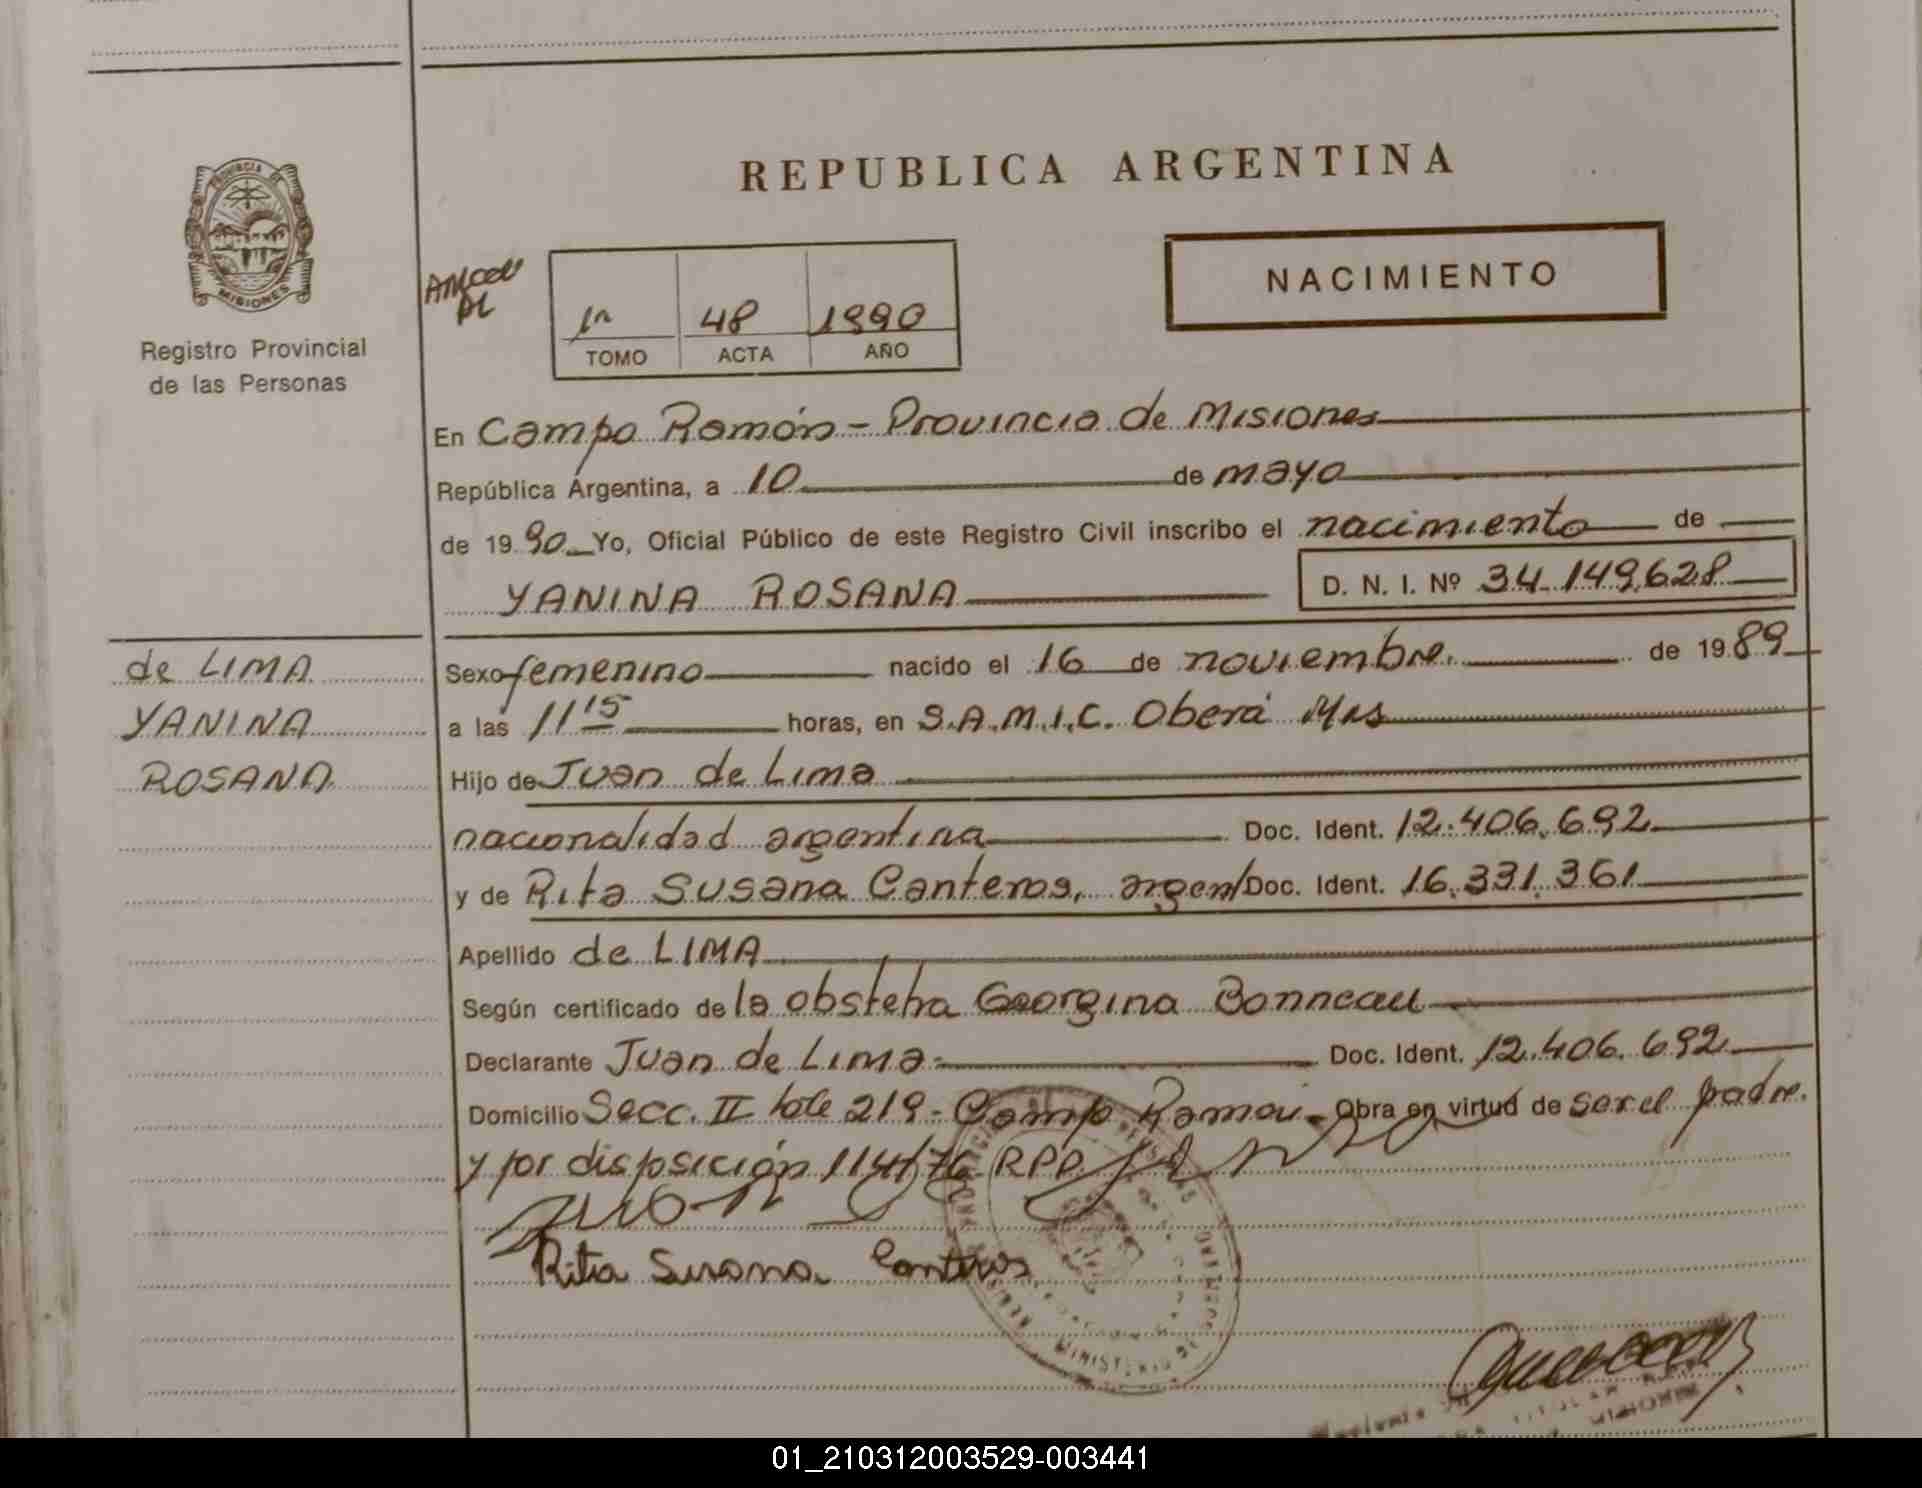 REPUBLICA ARGENTINA
PROVINCIA DE
MISIONES
Registro Provincial
de las Personas
NACIMIENTO
1º 48 1990
TOMO ACTA AÑO
En Campo Ramón - Provincia de Misiones
República Argentina, a 10 de mayo
de 19 90 Yo, Oficial Público de este Registro Civil inscribo el nacimiento de
YANINA ROSANA D. N. I. Nº 34.149.628
de LIMA
YANINA
ROSANA
Sexo femenino nacido el 16 de noviembre. de 19 89
a las 11 15 horas, en S.A.M.I.C. Oberá Mns
Hijo de Juan de Lima
nacionalidad argentina Doc. Ident. 12.406.692
y de Rita Susana Canteros, argent Doc. Ident. 16.331.361
Apellido de LIMA
Según certificado de la obstetra Georgina Bonneau
Declarante Juan de Lima Doc. Ident. 12.406.692
Domicilio Secc. II lote 219 - Campo Ramón. Obra en virtud de ser el padre.
y por disposición 114/76 RPP.
Rita Susana Canteros
MINISTERIO DE
01_210312003529-003441